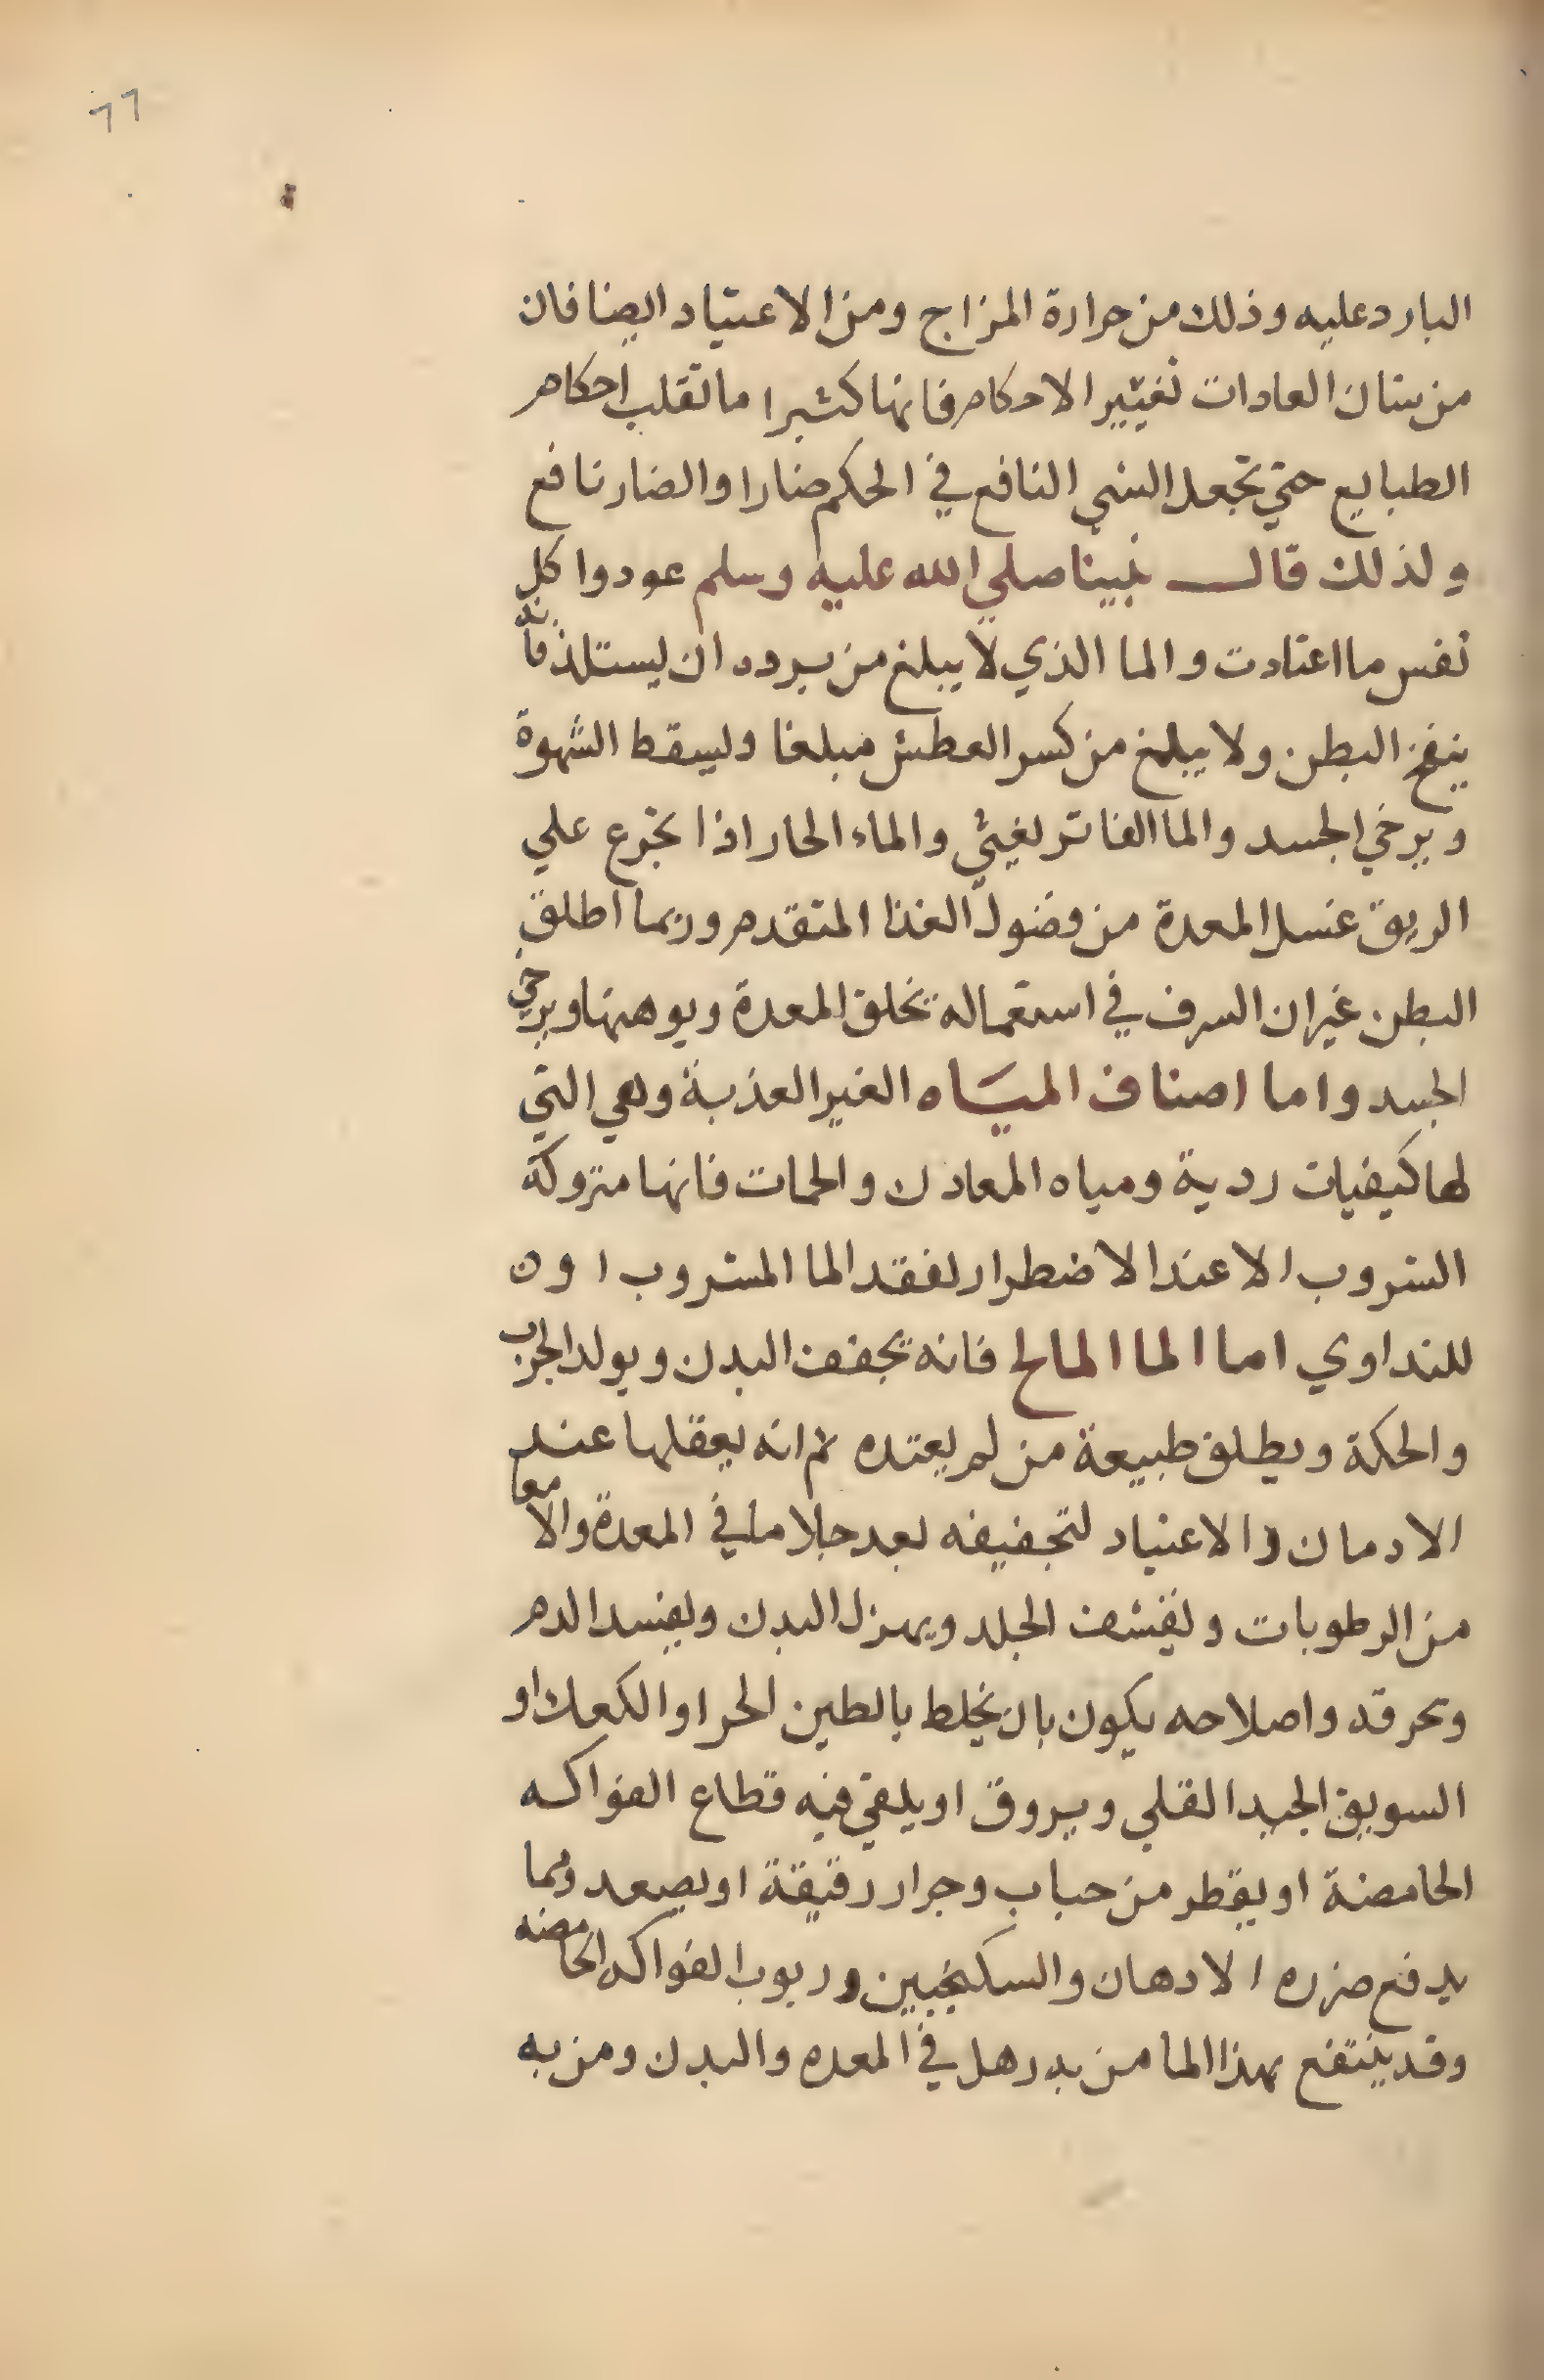 ٦٦
البارد عليه وذلك من حرارة المزاج ومن الاعتياد ايضا فان
من شان العادات تغيير الاحكام فانها كثيرا ما تقلب احكام
الطبايع حتي تجعل الشي النافع في الحكم ضارا والضار نافع
ولذلك قال نبينا صلي الله عليه وسلم عودوا كل
نفس ما اعتادت والما الذي لا يبلغ من برده ان يستلذ فانه
ينفخ البطن ولا يبلغ من كسر العطش مبلغا ويسقط الشهوة
ويرخي الجسد والما الفاتر يغثي والماء الحار اذا تجرع علي
الريق غسل المعدة من فضول الغذا المتقدم وربما اطلق
البطن غير ان السرف في استعماله يخلق المعدة ويوهنها ويرخي
الجسد واما اصناف المياه الغير العذبة وهي التي
لها كيفيات ردية ومياه المعادن والحمات فانها متروكة
الشروب الا عند الاضطرار لفقد الما المشروب اون
للتداوي اما الما المالح فانه يجفف البدن ويولد الجرب
والحكة ويطلق طبيعة من لم يعتده ثم انه يعقلها عند
الادمان والاعتياد لتجفيفه بعد جلا ما في المعدة والامعا
من الرطوبات ويقشف الجلد ويهزل البدن ويفسد الدم
ويحرقه واصلاحه يكون بان يخلط بالطين الحر او الكعك او
السويق الجيد القلي ويروق او يلقي فيه قطاع الفواكه
الحامضة او يقطر من حباب وجرار رقيقة او يصعد ومما
يدفع ضرره الادهان والسكنجبين وربوب الفواكه الحامضه
وقد ينتفع بهذا الما من به رهل في المعده والبدن ومن به